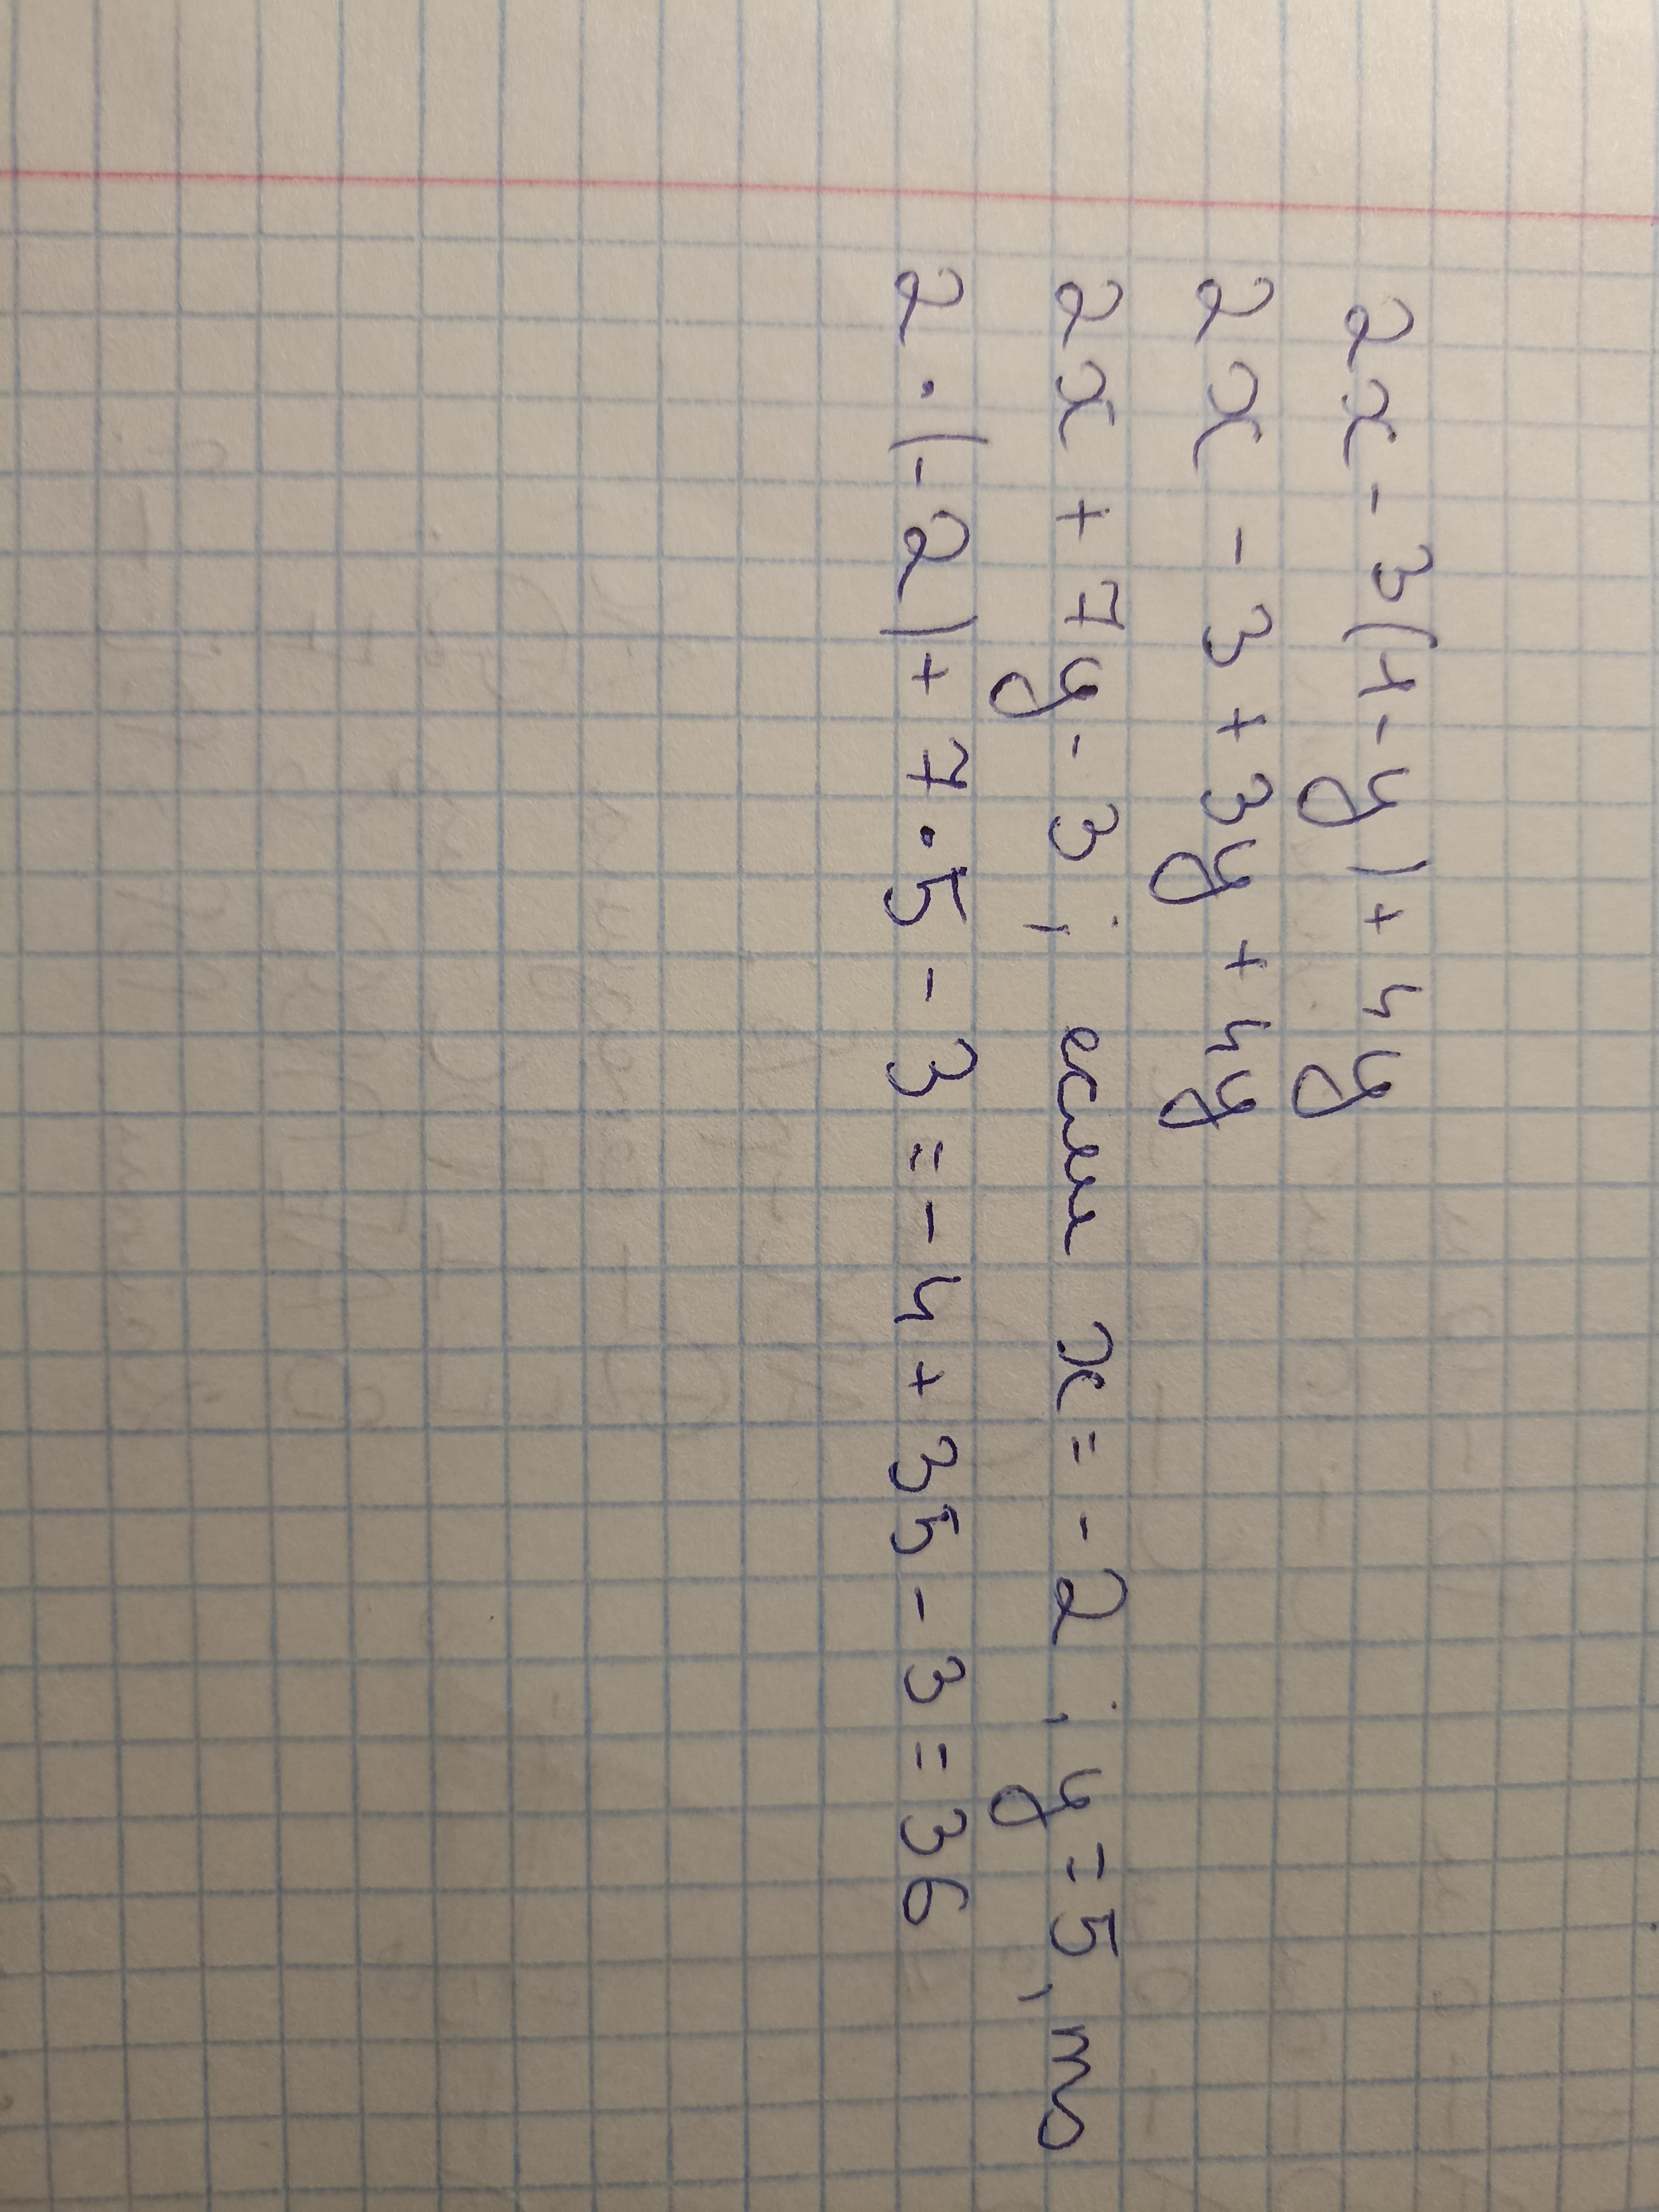 2x - 3(1-y) + 4y
2x - 3 + 3y + 4y
2x + 7y - 3; если x = -2; y = 5, то
2·(-2) + 7·5 - 3 = -4 + 35 - 3 = 36